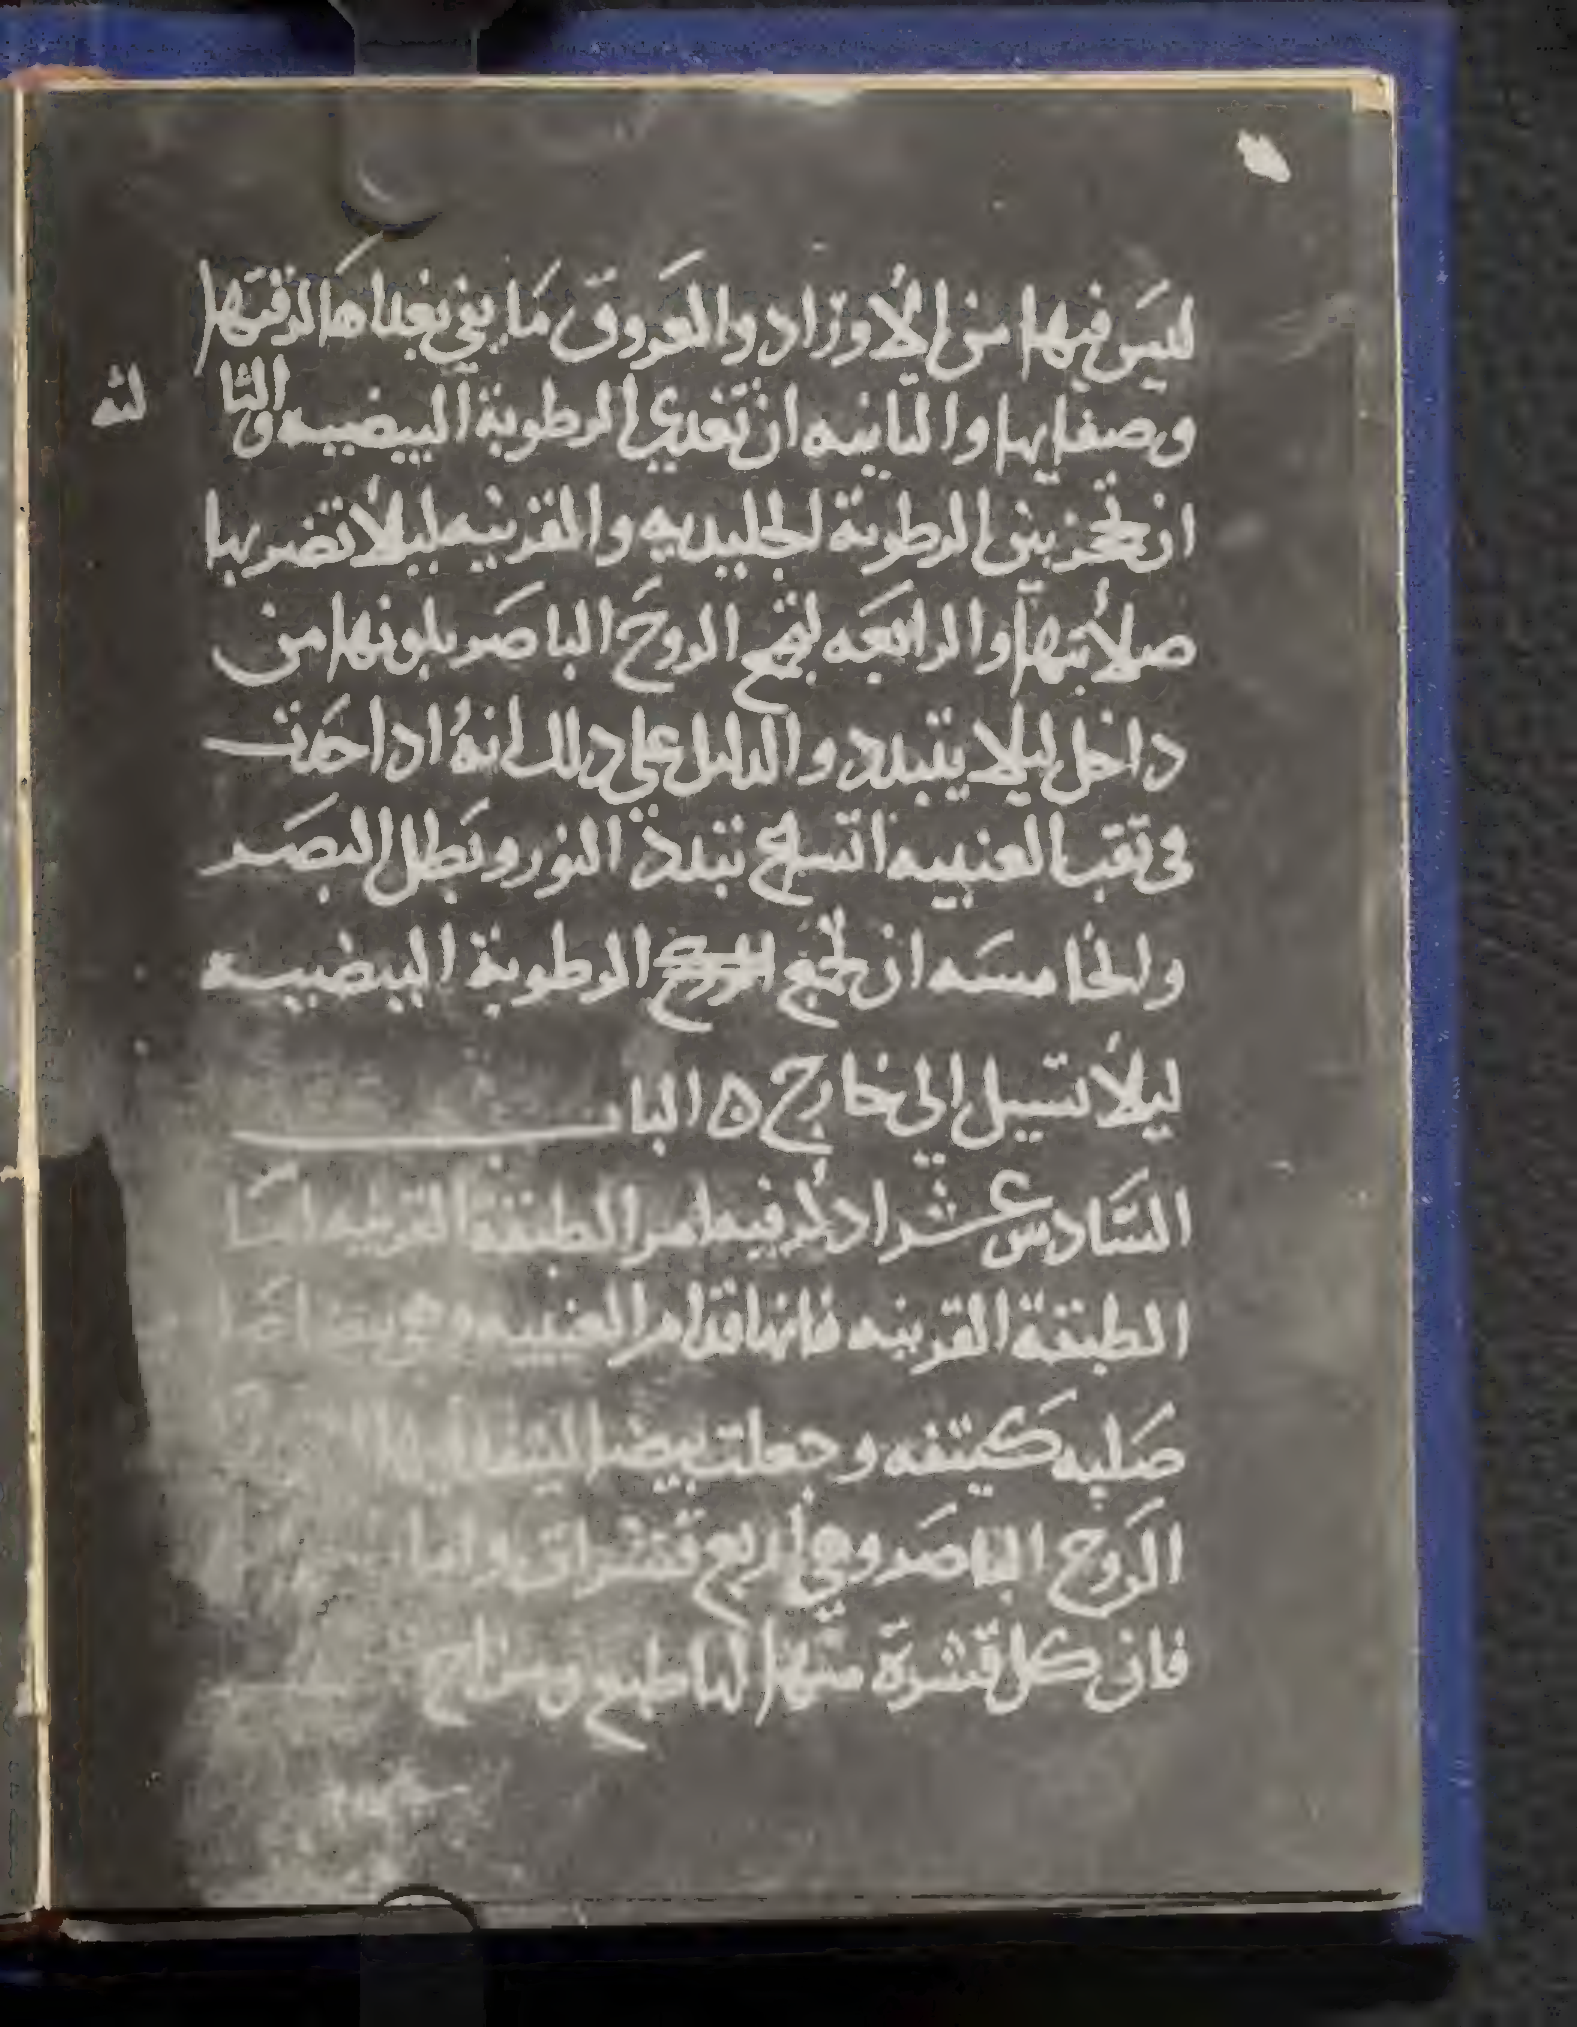 ليس فيها من الأوراد والعروق ما يفي بغداها لرقتها
وصفايها والثانيه ان تغدي الرطوبة البيضيه والثا
لثه
ان تحجز بين الرطوبة الجليديه والقرنيه ليلا تضر بها
صلابتها والرابعه لتجمع الروح الباصر بلونها من
داخل ليلا يتبدد والدليل على دلك انه ادا حدت
في تقب العنبيه اتساع تبدد النور وبطل البصر
والخامسه ان تجمع الروح الرطوبة البيضيه
ليلا تسيل الي خارج ه الباب
السادس عشر ادكر فيه امر الطبقة القرنيه اما
الطبقة القرنيه فانها قدام العنبيه وهي بيضا
صلبه كثيفه وجعلت بيضا
الروح الباصر وهي اربع قشرات واما
فان كل قشرة منها لها طبع ومزاج